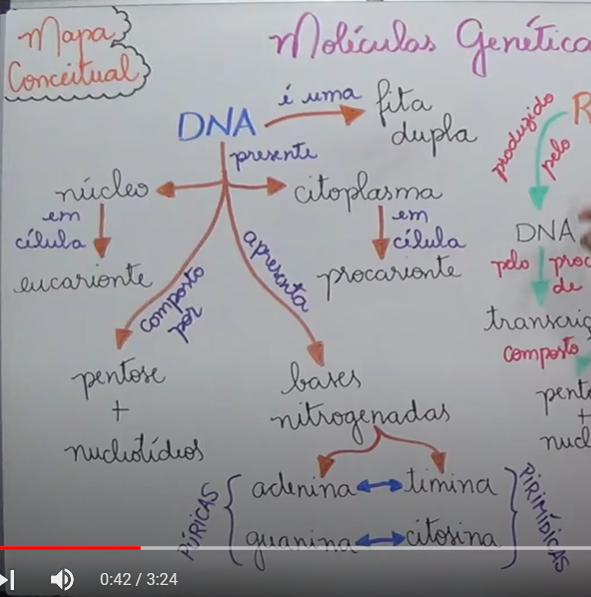 Mapa
Conceitual
Moléculas Genética
DNA
é uma
fita
dupla
presente
núcleo
citoplasma
em
célula
eucarionte
em
célula
procarionte
composto
por
apresenta
pentose
+
nucleotídeos
bases
nitrogenadas
adenina
timina
guanina
citosina
PÚRICAS
PIRIMÍDICAS
R
produzido
pelo
DNA
pelo proc
de
transcriç
composto
pent
+
nucl
0:42 / 3:24